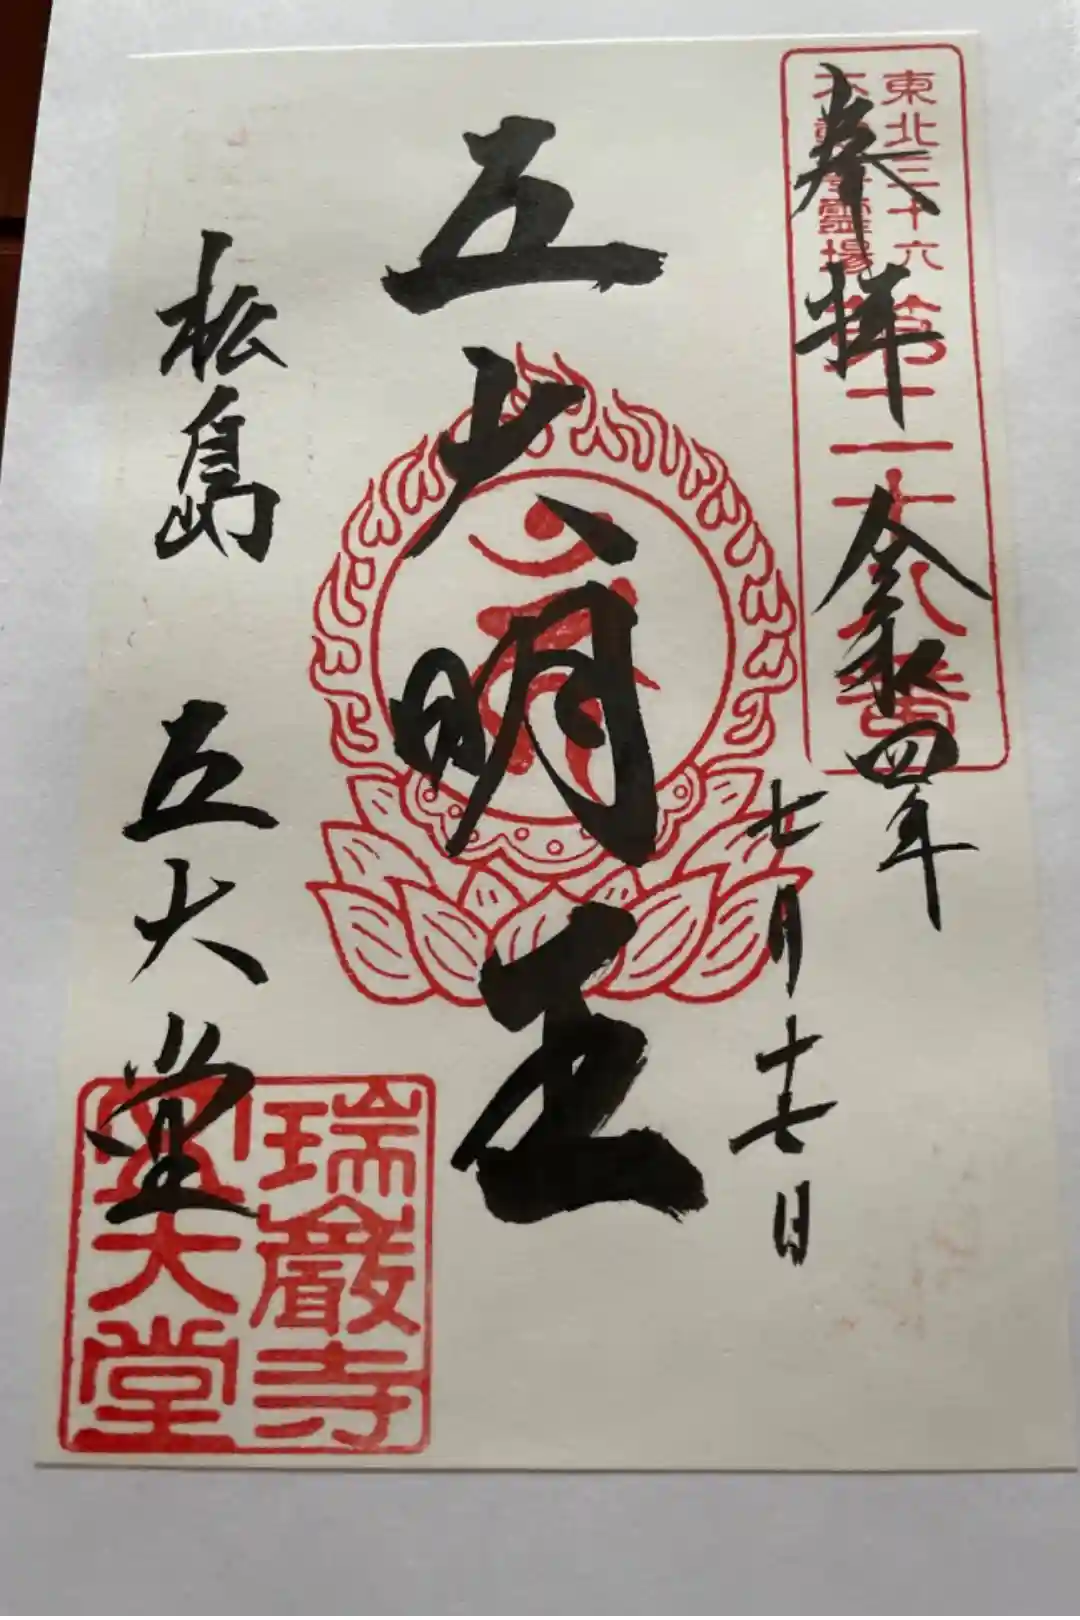 東北三十六
不動尊霊場
第二十八番
奉拝
令和四年
七月十七日
五大明王
松島
五大堂
瑞巖寺
五大堂